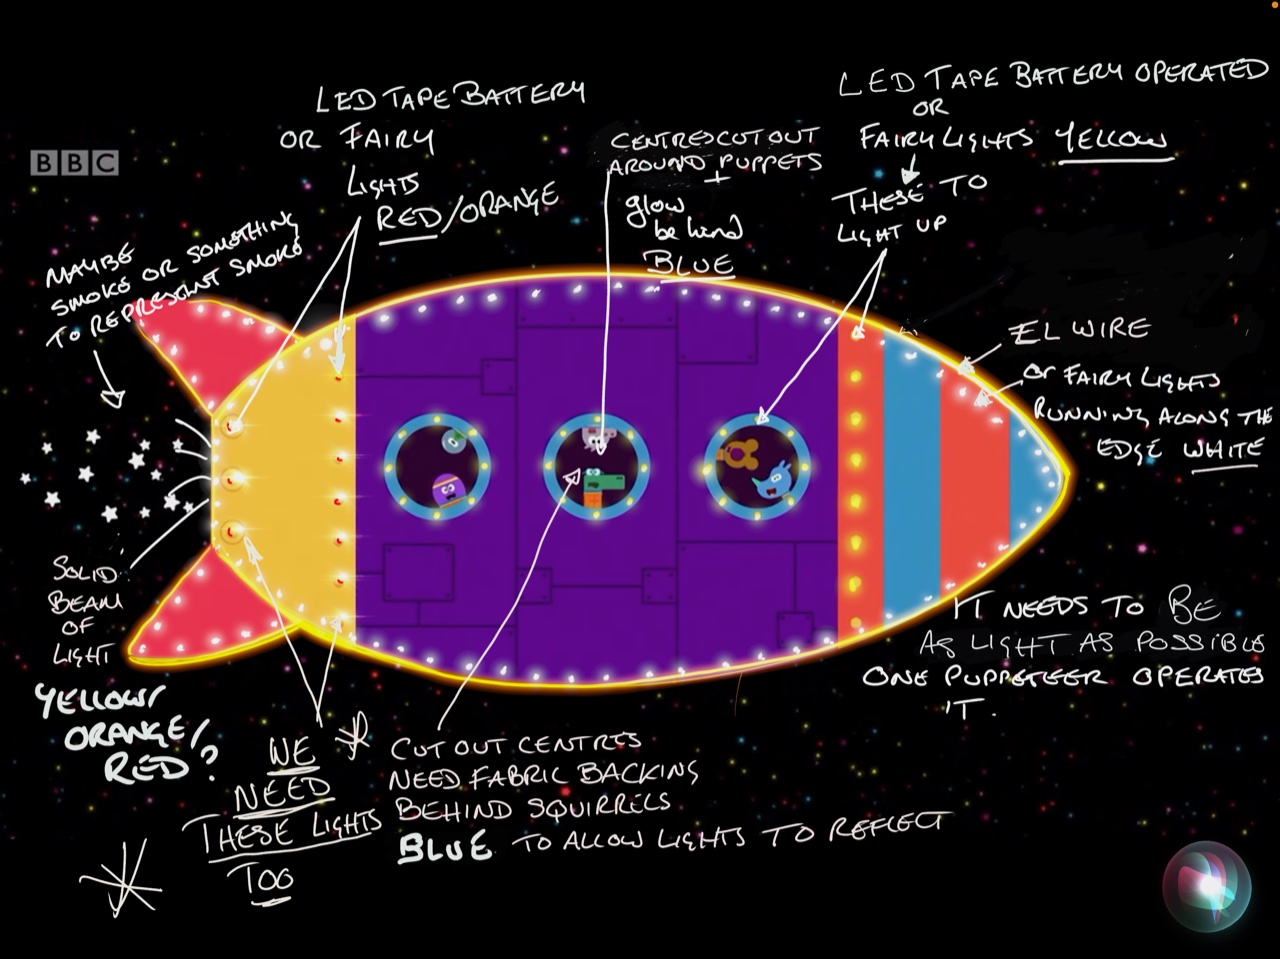 BBC
LED TAPE BATTERY
OR FAIRY
LIGHTS
RED/ORANGE
CENTRES CUT OUT
AROUND PUPPETS
+
glow
behind
BLUE
LED TAPE BATTERY OPERATED
OR
FAIRY LIGHTS YELLOW
THESE TO
LIGHT UP
MAYBE
SMOKE OR SOMETHING
TO REPRESENT SMOKE
EL WIRE
or FAIRY LIGHTS
RUNNING ALONG THE
EDGE WHITE
SOLID
BEAM
OF
LIGHT
YELLOW/
ORANGE/
RED?
IT NEEDS TO BE
AS LIGHT AS POSSIBLE
ONE PUPPETEER OPERATES
IT.
WE
NEED
THESE LIGHTS
TOO
CUT OUT CENTRES
NEED FABRIC BACKING
BEHIND SQUIRRELS
BLUE TO ALLOW LIGHTS TO REFLECT